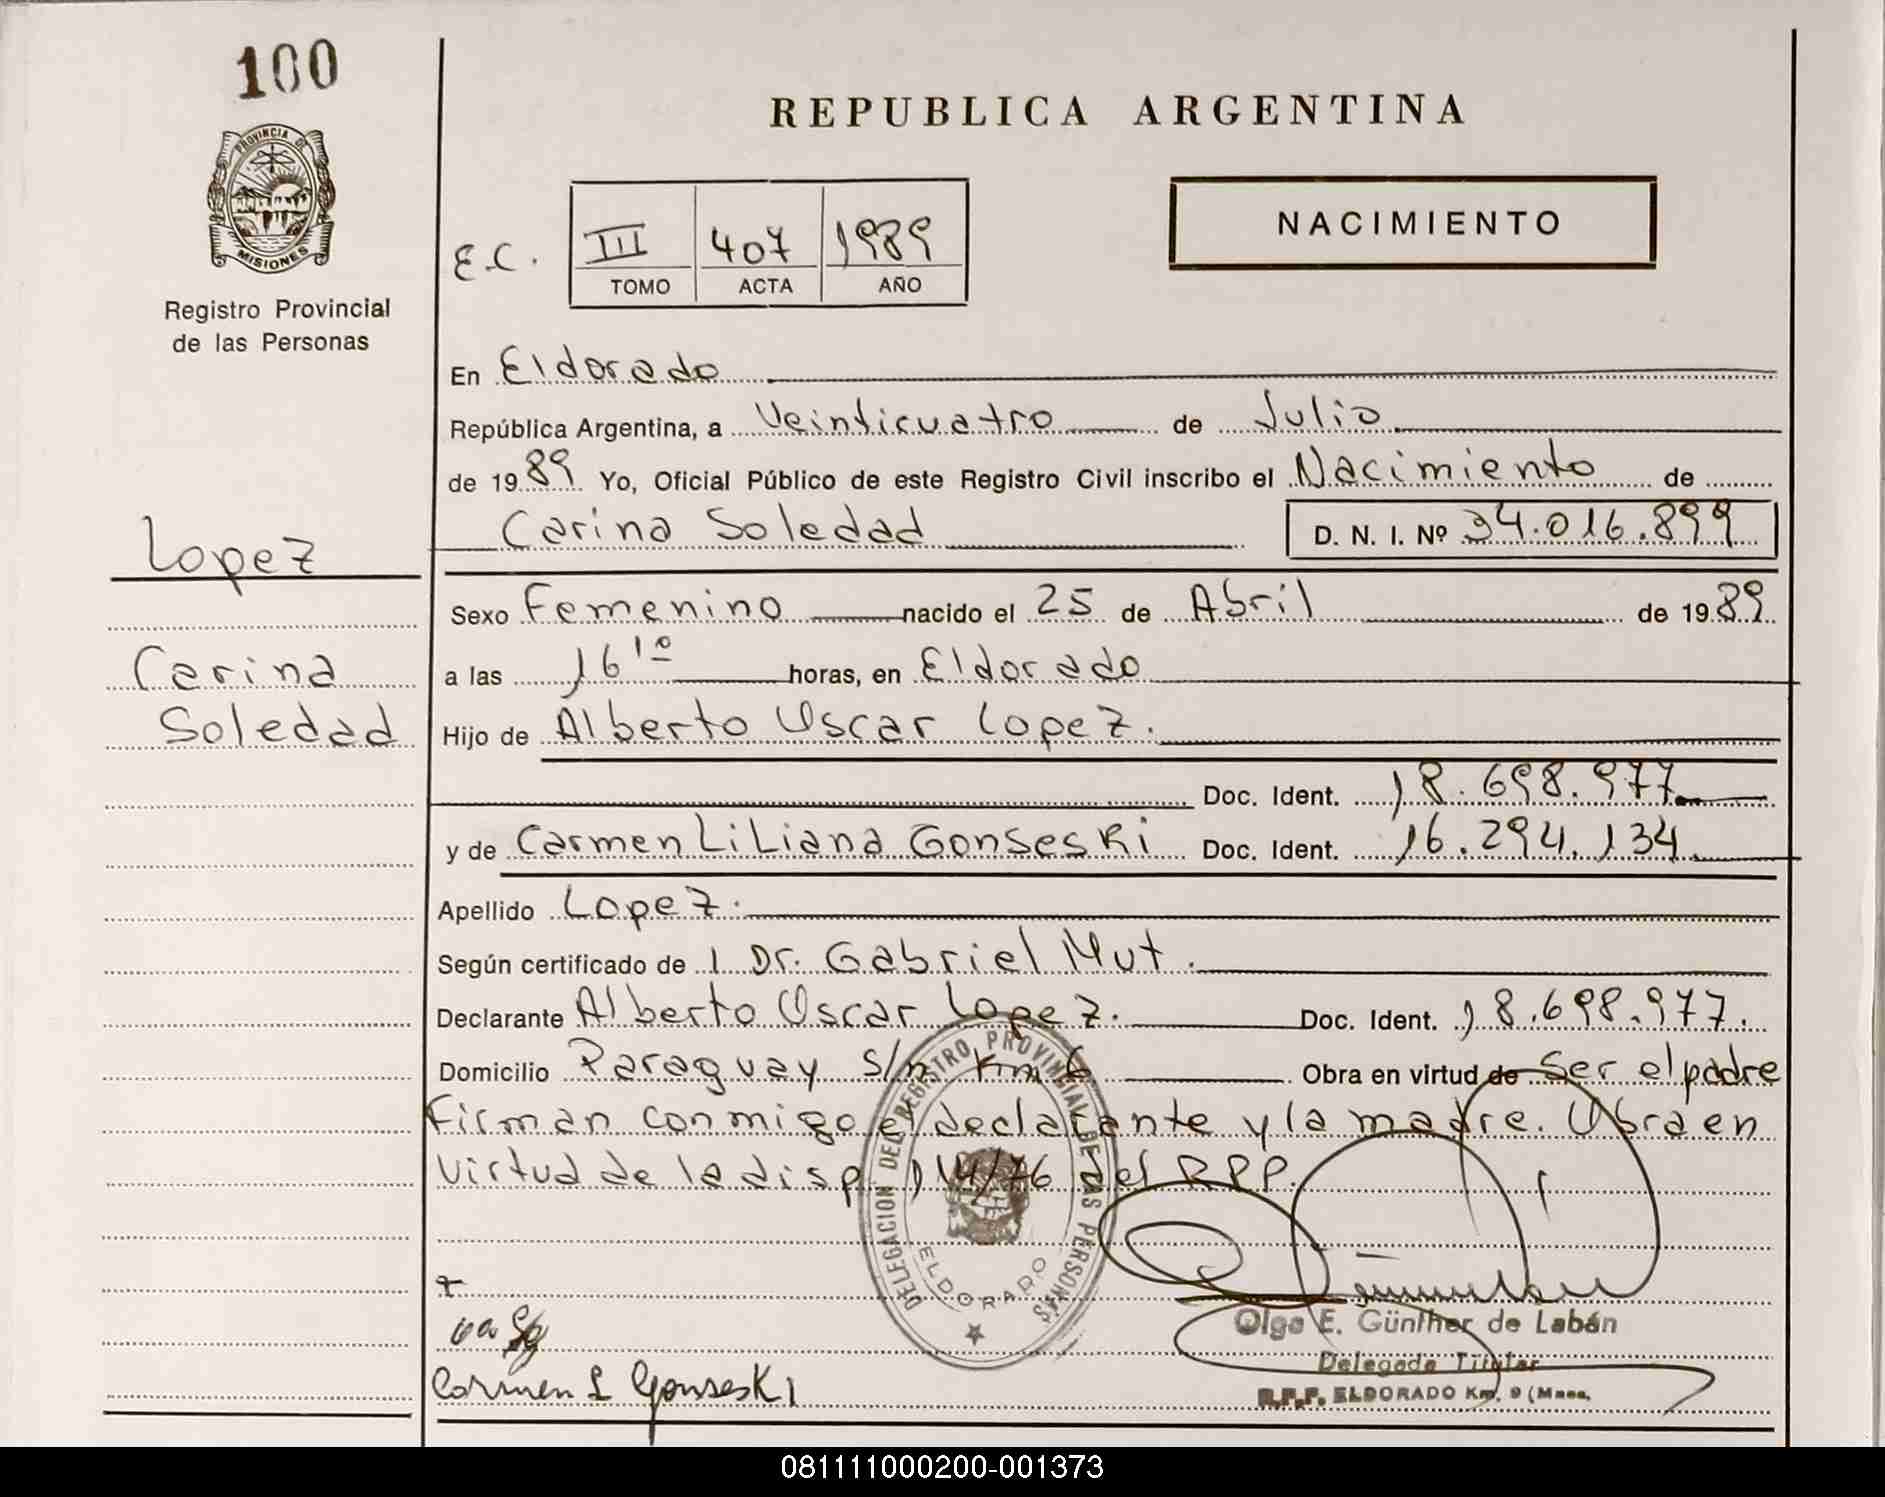 100
PROVINCIA DE
MISIONES
Registro Provincial
de las Personas
Lopez
Carina
Soledad
REPUBLICA ARGENTINA
NACIMIENTO
E.C.
III 407 1989
TOMO ACTA AÑO
En Eldorado
República Argentina, a Veinticuatro de Julio
de 1989 Yo, Oficial Público de este Registro Civil inscribo el Nacimiento de
Carina Soledad D. N. I. Nº 34.016.899
Sexo Femenino nacido el 25 de Abril de 1989
a las 16 10 horas, en Eldorado
Hijo de Alberto Oscar Lopez.
Doc. Ident. 18.698.977
y de Carmen Liliana Gonseski Doc. Ident. 16.294.134
Apellido Lopez.
Según certificado de 1 Dr. Gabriel Mut.
Declarante Alberto Oscar Lopez. Doc. Ident. 18.698.977.
Domicilio Paraguay s/n Km 6 Obra en virtud de Ser el padre
Firman conmigo el declarante y la madre. Obra en
virtud de la disp 114/76 del RPP.
DELEGACION DEL REGISTRO PROVINCIAL DE LAS PERSONAS
ELDORADO
Olga E. Günther de Labán
Delegada Titular
R.P.P. ELDORADO Km. 9 (Mnes.
Carmen L Gonseski
081111000200-001373